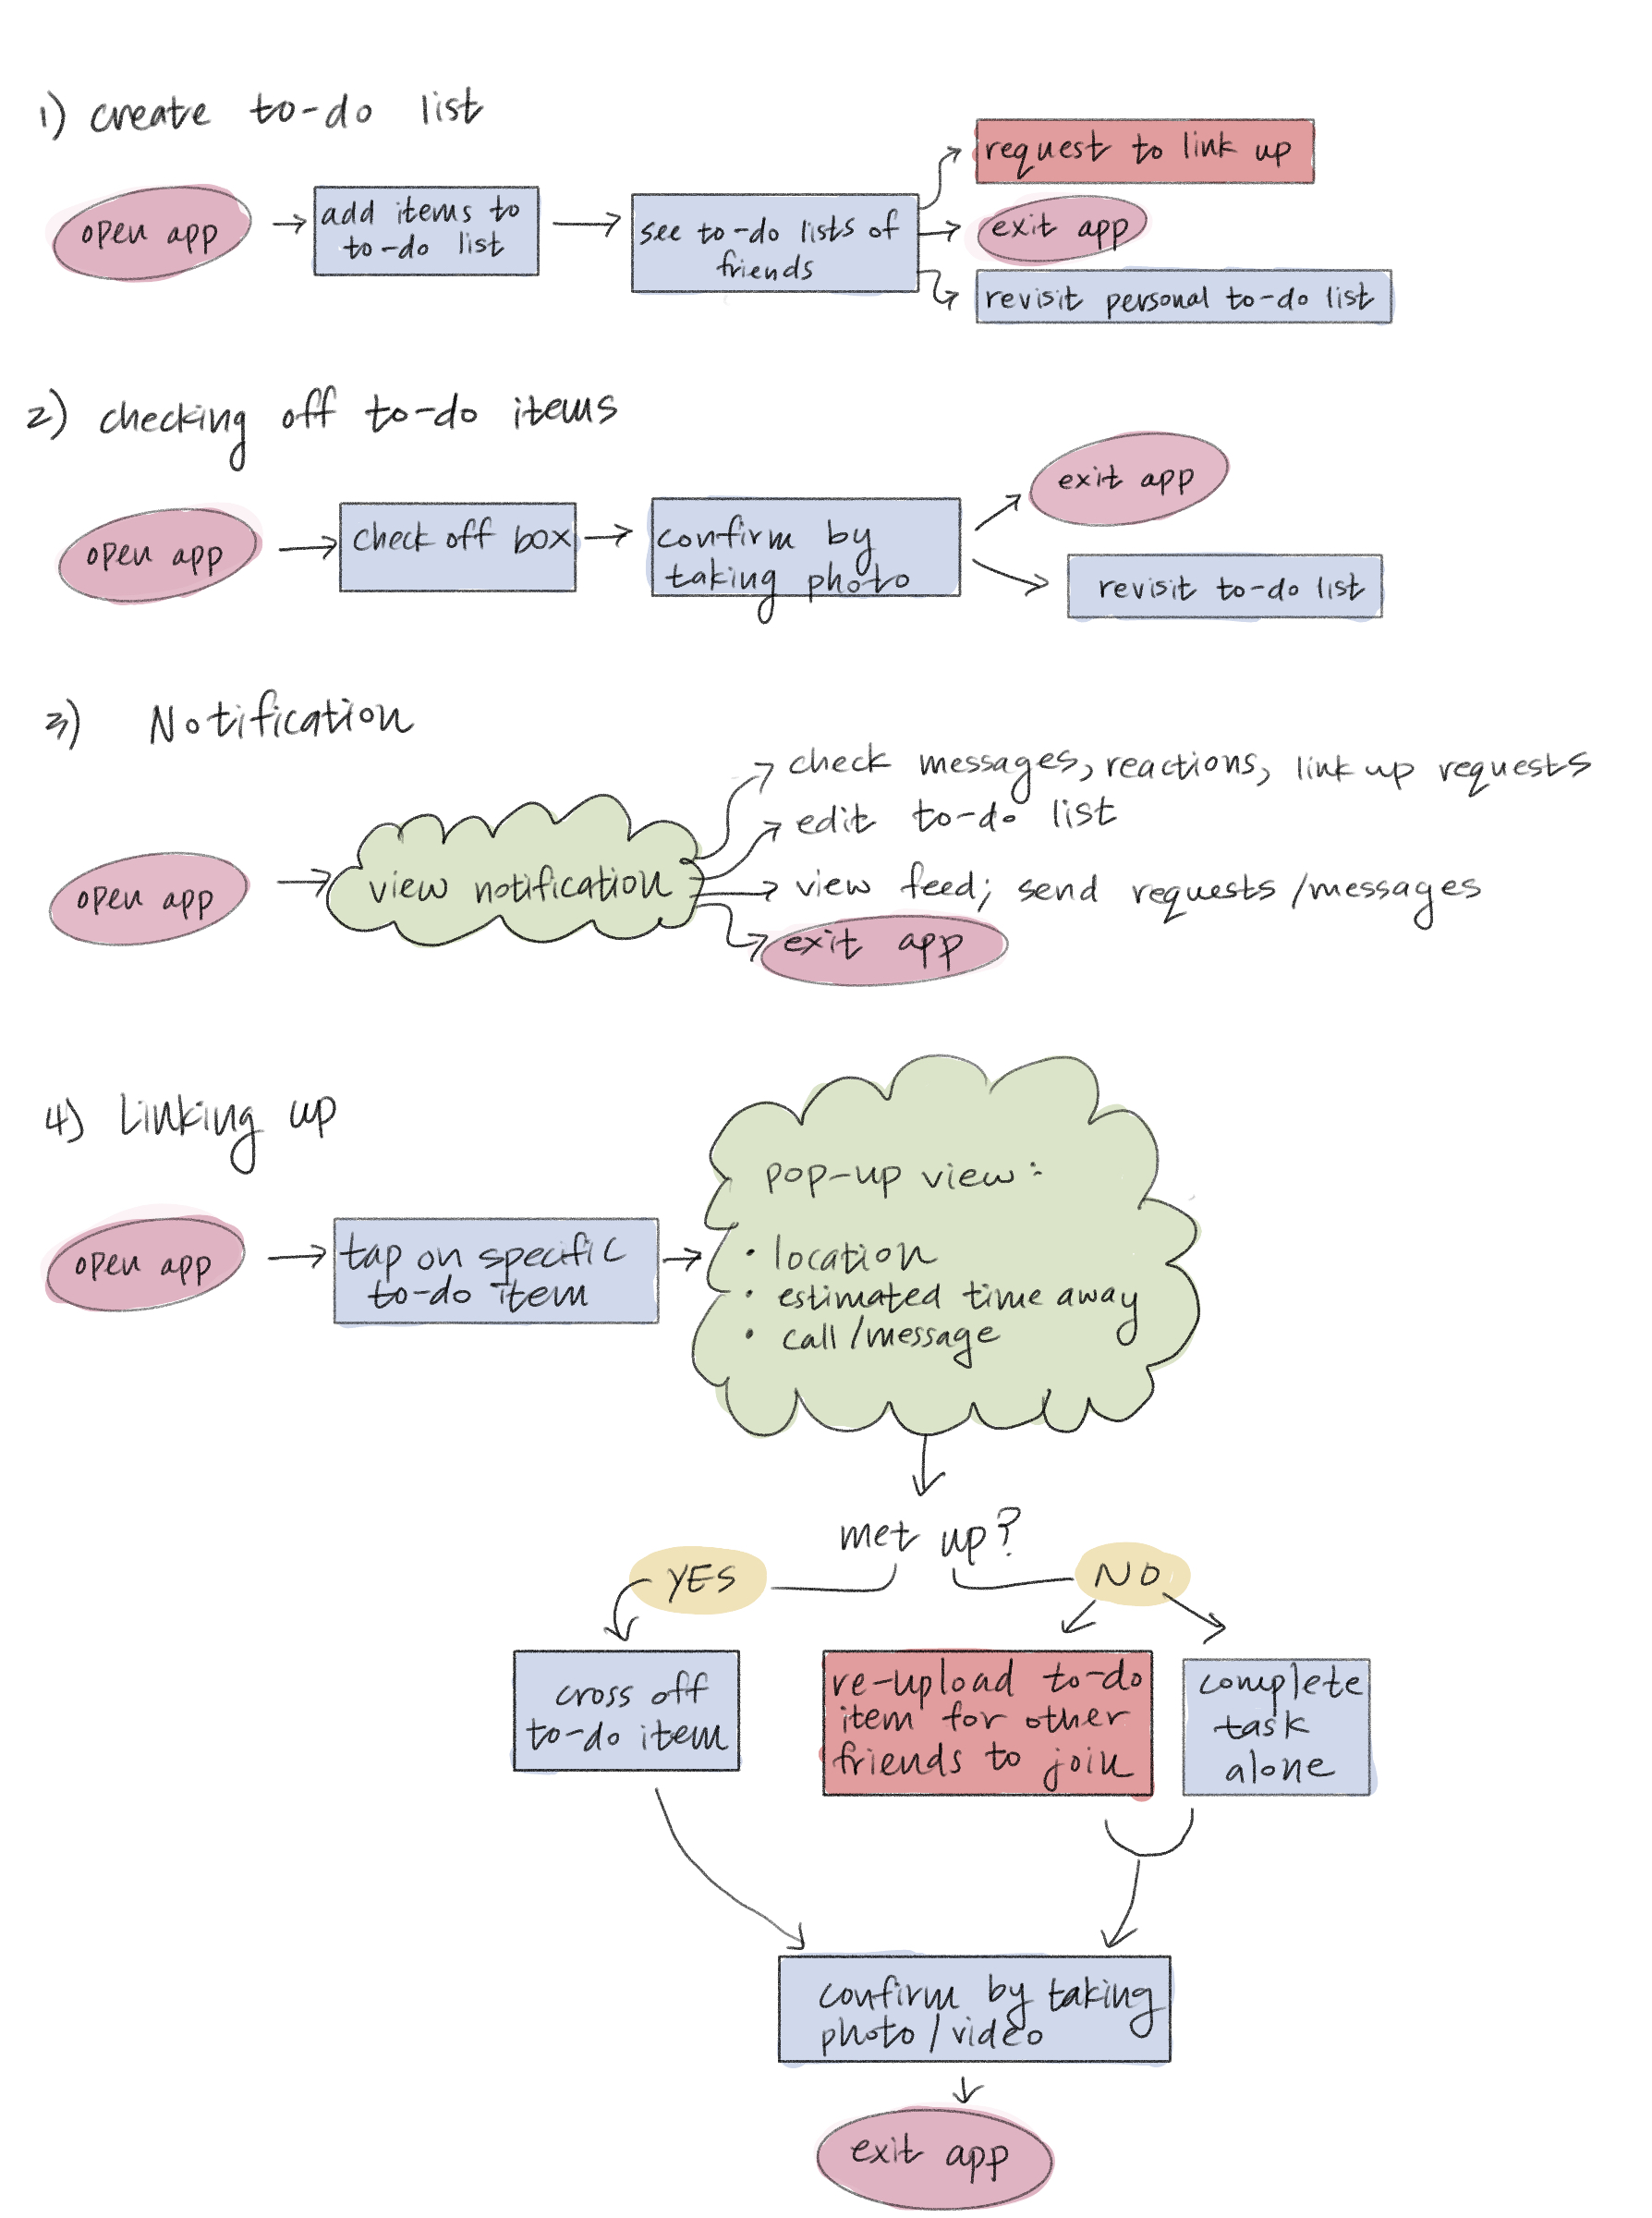 1) create to-do list
open app
add items to
to-do list
see to-do lists of
friends
request to link up
exit app
revisit personal to-do list
2) checking off to-do items
open app
check off box
confirm by
taking photo
exit app
revisit to-do list
3) Notification
open app
view notification
check messages, reactions, link up requests
edit to-do list
view feed; send requests/messages
exit app
4) Linking up
open app
tap on specific
to-do item
pop-up view:
• location
• estimated time away
• call/message
met up?
YES
NO
cross off
to-do item
re-upload to-do
item for other
friends to join
complete
task
alone
confirm by taking
photo/video
exit app